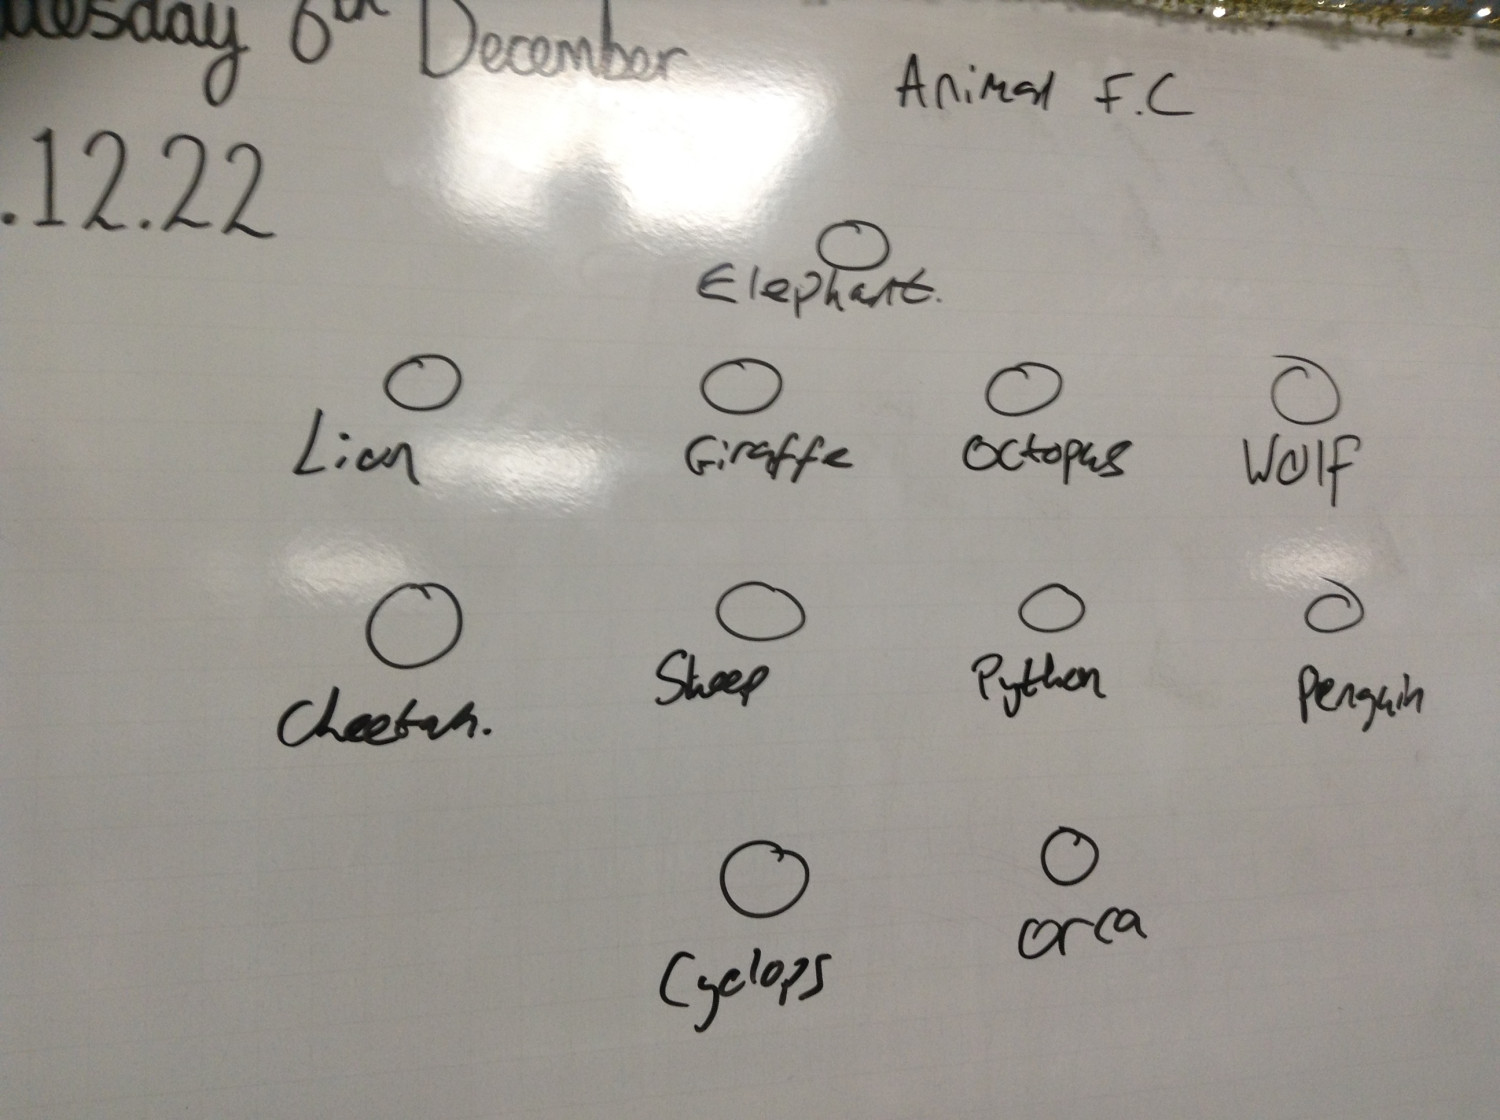 uesday 6th December
Animal F.C
.12.22
Elephant.
Lion Giraffe Octopus Wolf
Cheetah. Sheep Python Penguin
Cyclops orca